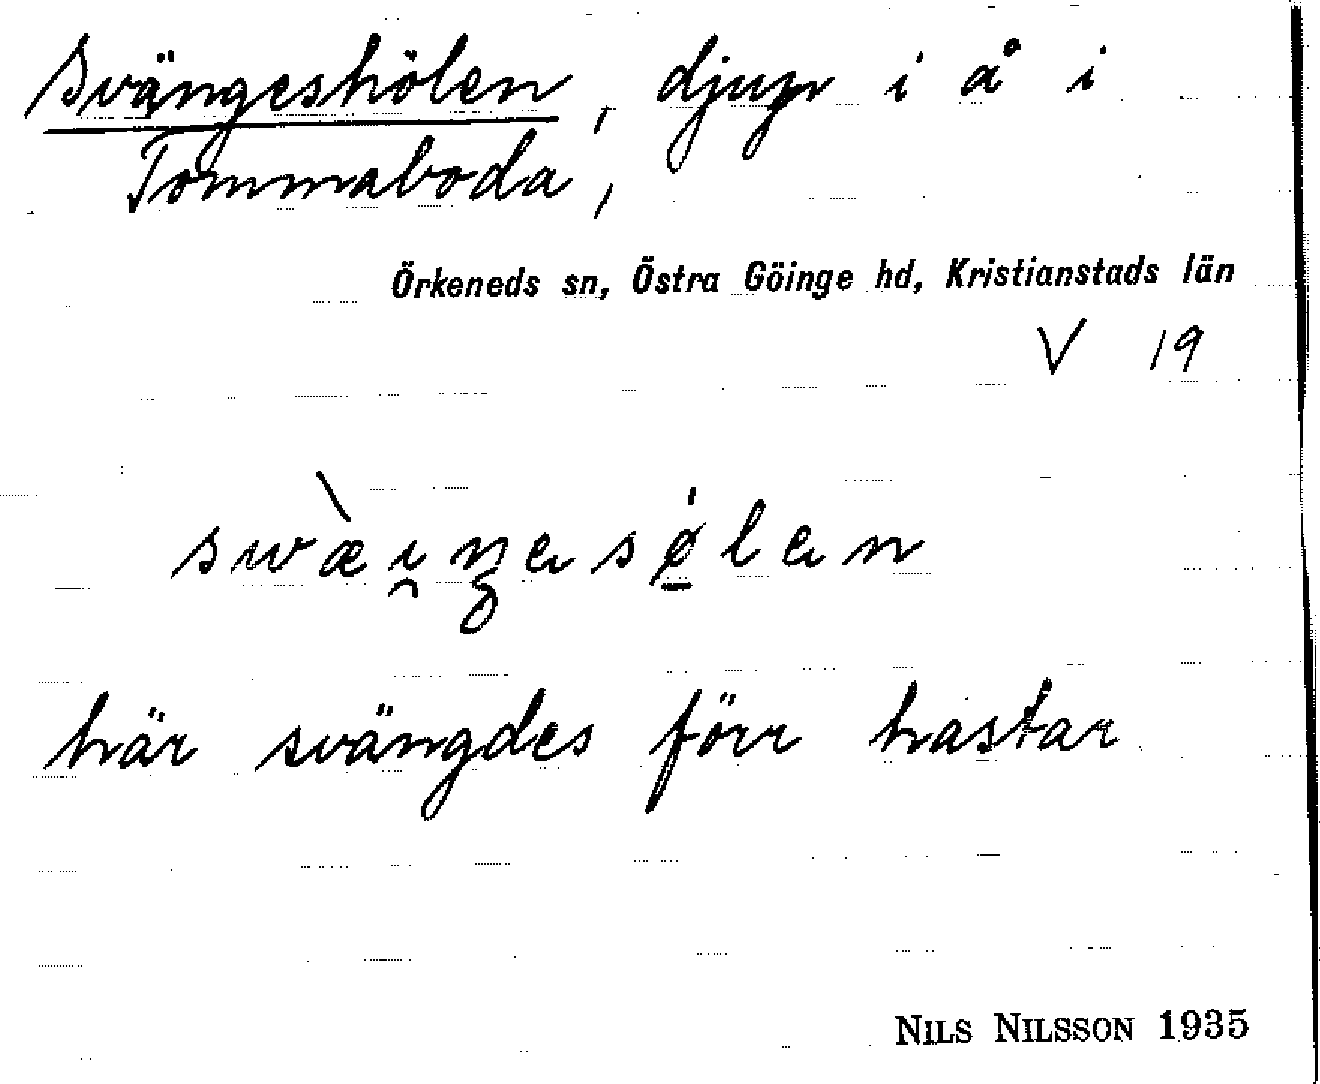 Svängeshölen, djup i å i
Tommaboda,
Örkeneds sn, Östra Göinge hd, Kristianstads län
V 19
här svängdes förr hästar
NILS NILSSON 1935